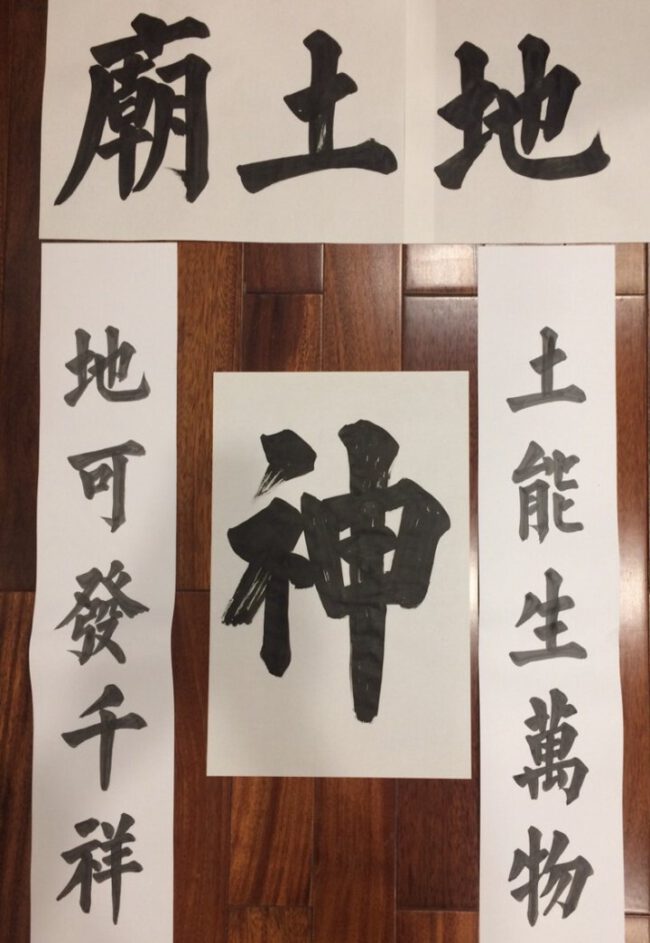 地土廟
土能生萬物
神
地可發千祥